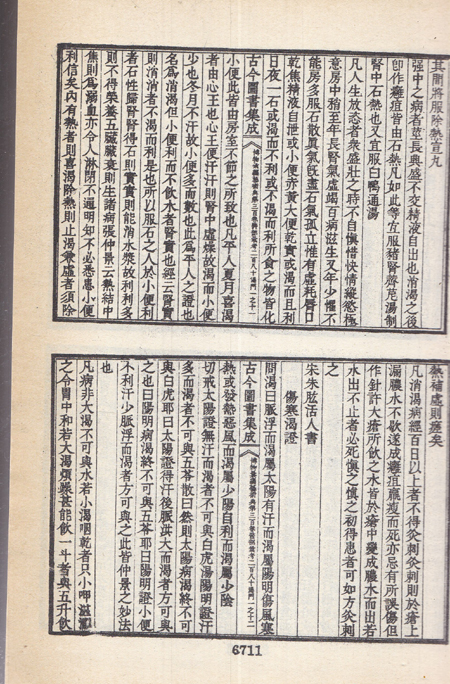 其間將服除熱宣九
強中之病者莖長興盛不交精液自出也消渴之後
卽作癰疽皆由石熱凡如此等宜服豬腎薺苨湯制
腎中石熱也又宜服白鴨通湯
凡人生放恣者衆盛壯之時不自慎惜快情縱慾極
意房中稍至年長腎氣虛竭百病滋生又年少懼不
能房多服石散眞氣旣盡石氣孤立惟有虛耗唇口
乾焦精液自泄或小便赤黃大便乾實或渴而且利
日夜一石或渴而不利或不渴而利所食之物皆化
古今圖書集成
小便此皆由房室不節之所致也凡平人夏月喜渴
者由心王也心王便汗汗則腎中虛燥故渴而小便
少也冬月不汗故小便多而數也此爲平人之證也
名爲消渴但小便利而不飮水者腎實也經云腎實
則消消者不渴而利是也所以服石之人於小便利
者石性歸腎腎得石則實實則能消水漿故利利多
則不得榮養五臟臟衰則生諸病張仲景云熱結中
焦則爲溺血亦令人淋閉不通明知不必悉患小便
利信矣內有熱者則喜渴除熱則止渴兼虛者須除
熱補虛則瘥矣
凡消渴病經百日以上者不得灸刺灸刺則於瘡上
漏膿水不歇遂成癰疽羸瘦而死亦忌有所誤傷但
作針許大瘡所飮之水皆於瘡中變成膿水而出若
水出不止者必死慎之慎之初得患者可如方灸刺
之
宋朱肱活人書
傷寒渴證
問渴曰脈浮而渴屬太陽有汗而渴屬陽明傷風寒
熱或發熱惡風而渴屬少陽自利而渴屬少陰
古今圖書集成
切戒太陽證無汗而渴者不可與白虎湯陽明證汗
多而渴者不可與五苓散曰然則太陽病渴終不可
與白虎耶曰太陽證得汗後脈洪大而渴者方可與
之也曰陽明病渴終不可與五苓耶曰陽明證小便
不利汗少脈浮而渴者方可與之此皆仲景之妙法
也
凡病非大渴不可與水若小渴咽乾者只小呷滋潤
之令胃中和若大渴煩躁甚能飮一斗者與五升飮
6711